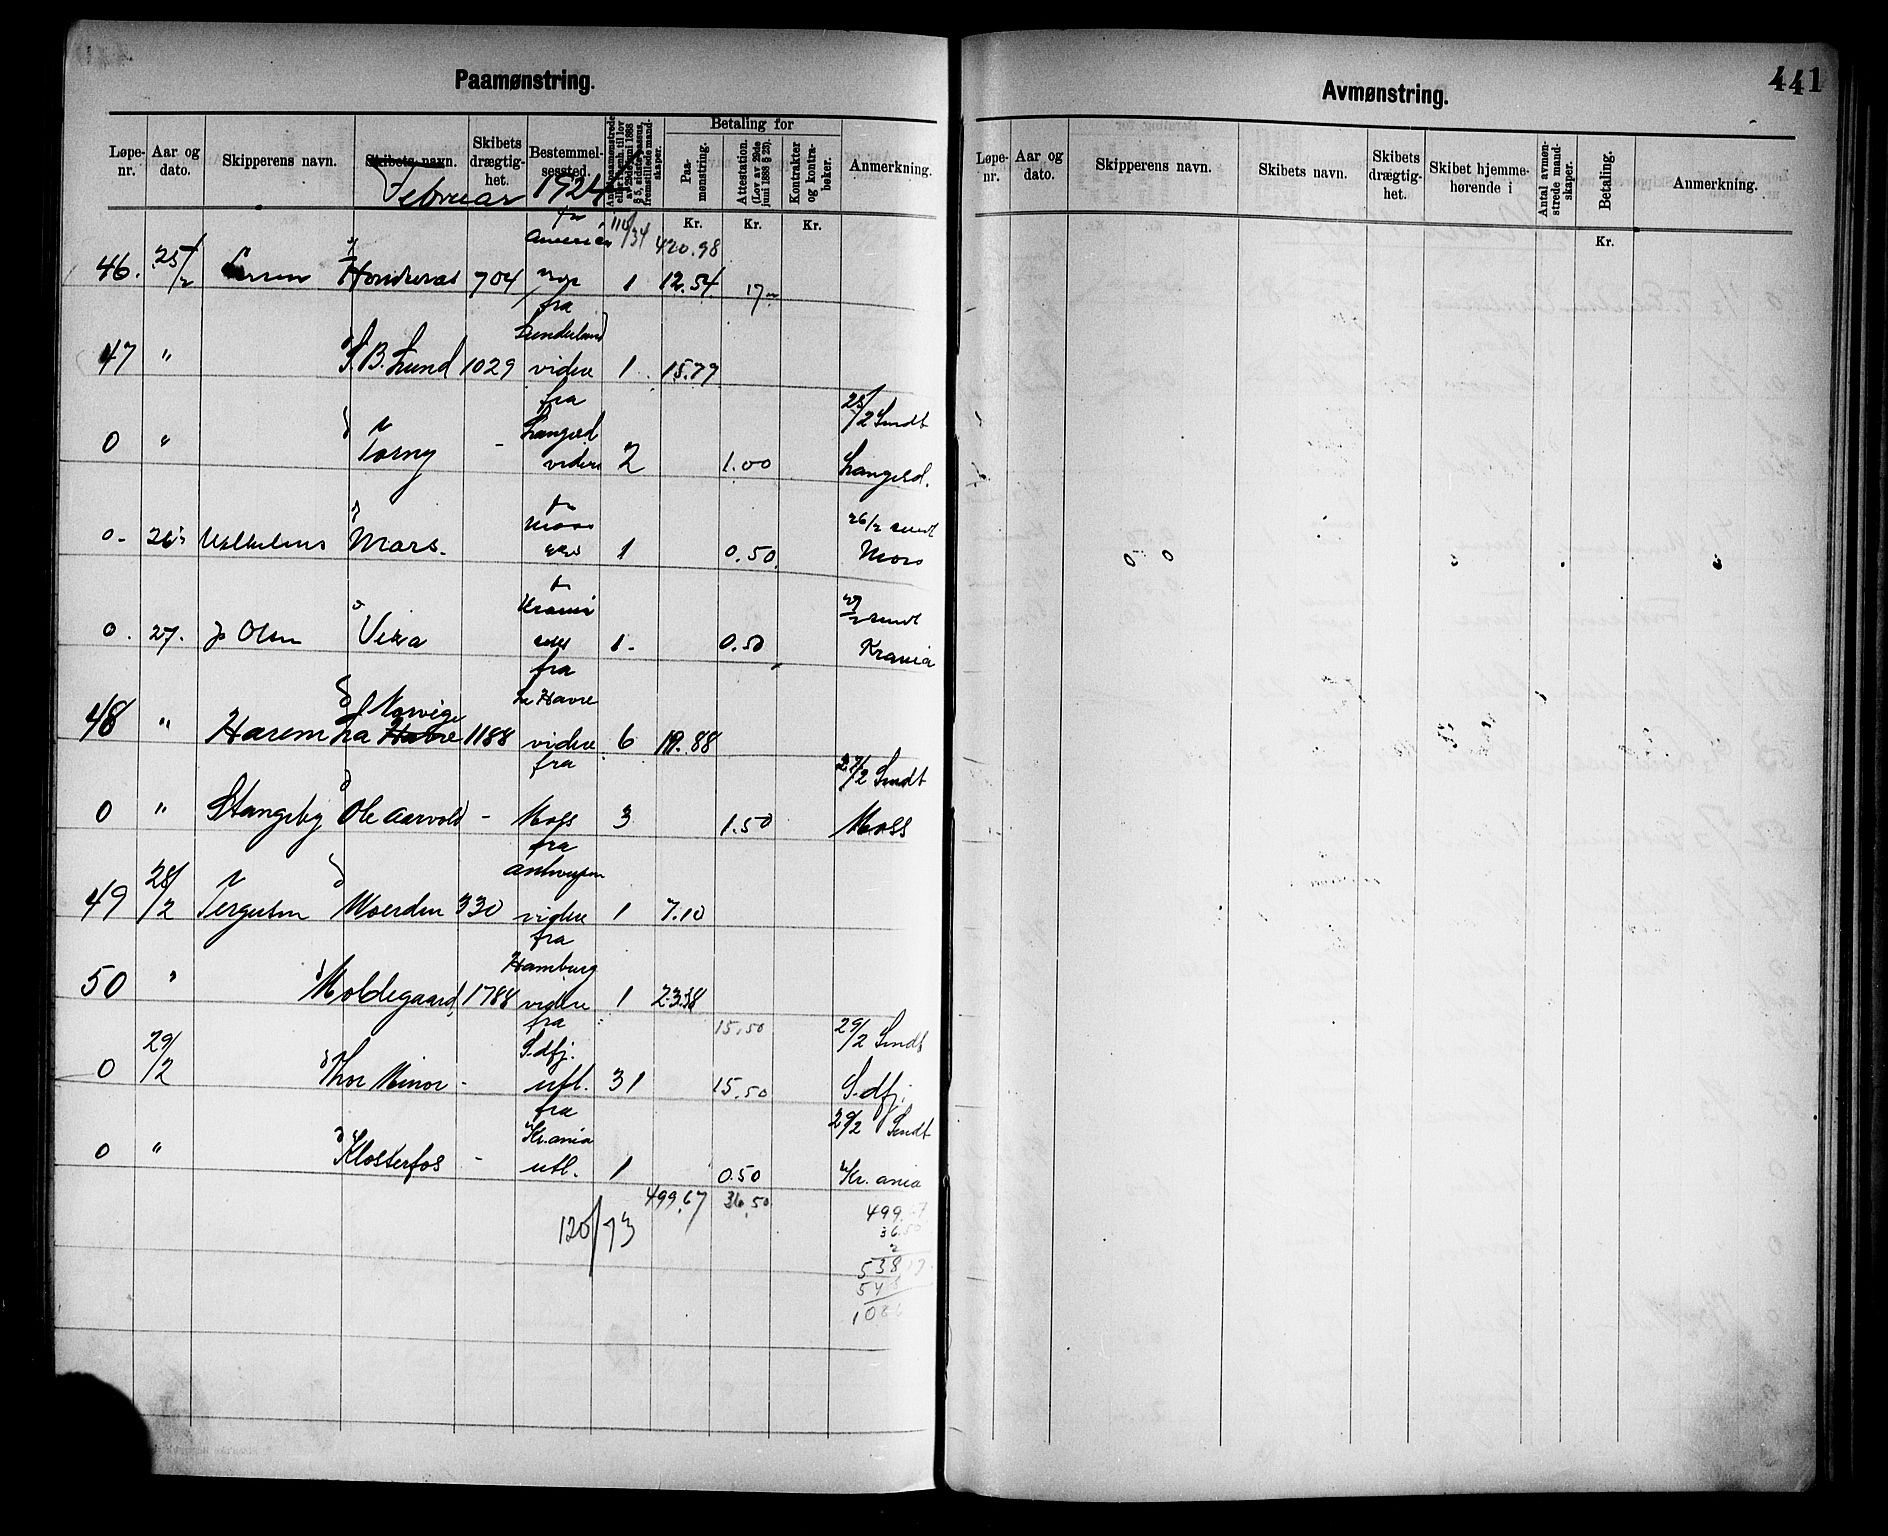 Paamønstring.
Løpe-nr. Aar og dato. Skipperens navn. Skibets navn. Skibets drægtig-het. Bestemmel-sessted. Betaling for Paa-mønstring. Attestation. (Lov av 29de juni 1888 § 25). Kontrakter og kontra-bøker. Anmerkning.
Februar 1924
Kr. Kr. Kr.
America 110/34 420.98
46. 25/2 Honduras 704 1 12.54
fra Sunderland
47 " S.B. Lund 1029 videre 1 15.79
fra Langesd 25/2 Sendt
0 " Torny - videre 2 1.00 Langesd.
Moss 26/2 sendt
0 - 26 Mars. 1 0.50 Moss
Krania 27/2 sendt
0. 27. Olsen Vera 1 0.50 Krania
fra Le Havre
Norvige
48 " Harem La Havre 1188 videre 6 19.88
fra 27/2 Sendt
0 " Stangeby Ole Aarvold - Moss 3 1.50 Moss
fra Antwerpen
49 28/2 Woerden 330 videre 1 7.10
fra Hamburg
50 " Moldegaard 1788 videre 1 23.38
fra S.dfj. 15.50 29/2 Sendt
0 29/2 Thor Minor - utl. 31 15.50 S.dfj.
fra Kr.ania 29/2 Sendt
0 " Klosterfos - utl. 1 0.50 Kr.ania
499.67 36.50
120/73 499.67
36.50
2
538.17
Avmønstring.
441
Løpe-nr. Aar og dato. Skipperens navn. Skibets navn. Skibets drægtig-het. Skibet hjemme-hørende i Antal avmøn-strede mand-skaper. Betaling. Anmerkning.
Kr.